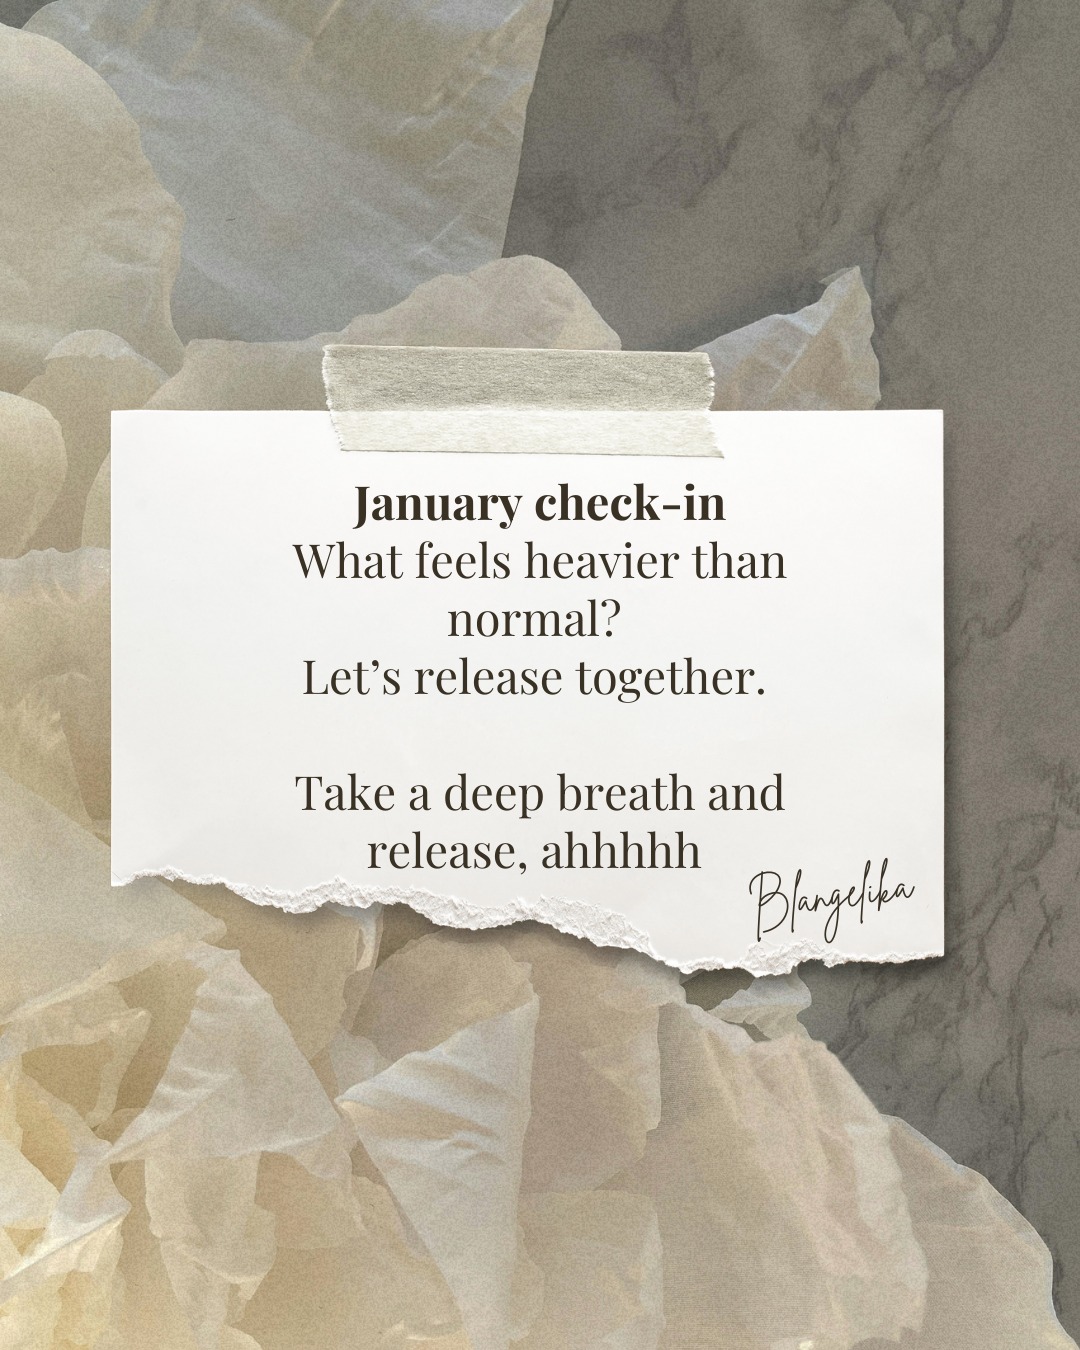 January check-in
What feels heavier than
normal?
Let’s release together.
Take a deep breath and
release, ahhhhh
Blangelika